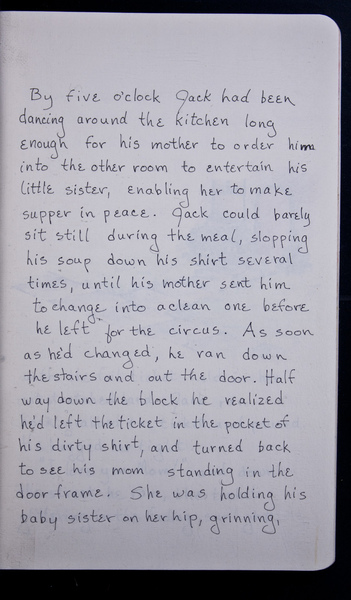 By five o'clock Jack had been
dancing around the kitchen long
enough for his mother to order him
into the other room to entertain his
little sister, enabling her to make
supper in peace. Jack could barely
sit still during the meal, slopping
his soup down his shirt several
times, until his mother sent him
to change into a clean one before
he left for the circus. As soon
as he'd changed, he ran down
the stairs and out the door. Half
way down the block he realized
he'd left the ticket in the pocket of
his dirty shirt, and turned back
to see his mom standing in the
door frame. She was holding his
baby sister on her hip, grinning,